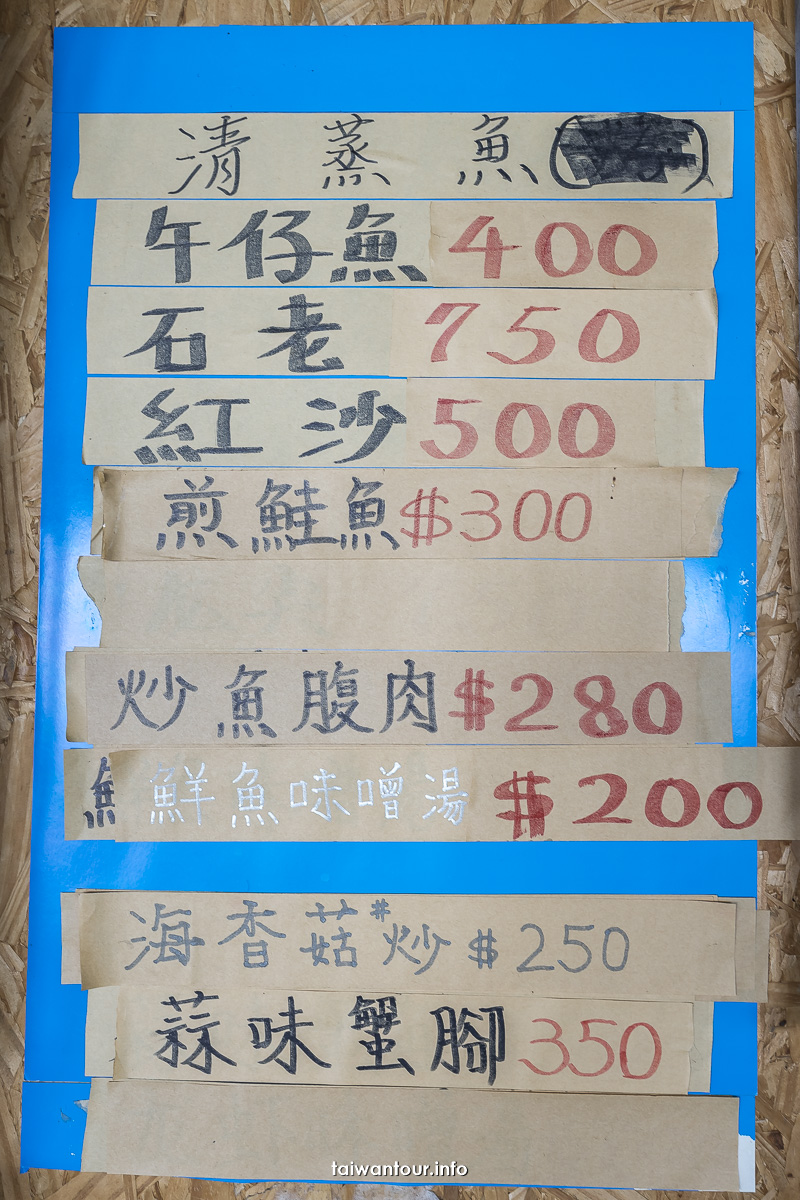 清蒸魚
午仔魚 400
石老 750
紅沙 500
煎鮭魚 $300
炒魚腹肉 $280
鮮魚味噌湯 $200
海香菇#炒 $250
蒜味蟹腳 350
taiwantour.info